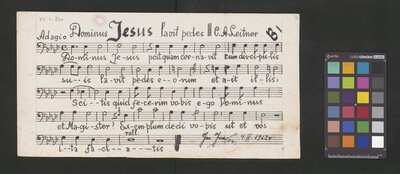 Adagio Dominus Jesus lavit pedes II C.A. Leitner 81
Do-mi-nus Je-sus postquam coe-na-vit cum dis-ci-pu-lis
su--is la-vit pe-des e--o-rum et a-it il-lis:
Sci--tis quid fe-ce-rim vo-bis e-go Do-mi-nus
et Ma-gi-ster? Ex-em-plum de-di vo-bis ut et vos
rall.
i--ta fa-ci--a----tis